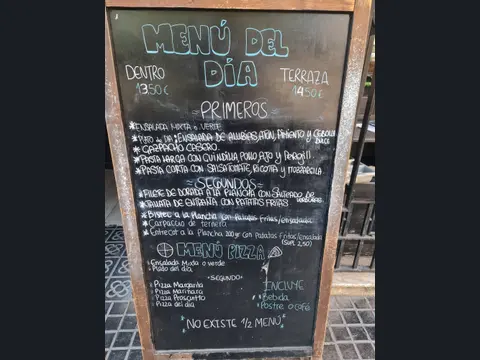 MENÚ DEL DÍA
DENTRO
13.50€
TERRAZA
14.50€
PRIMEROS
*ENSALADA MIXTA o VERTE
*PLATO DEL DÍA: ENSALADA DE ALUBIAS, ATÚN, PIMIENTO y CEBOLLA DULCE
*GAZPACHO CASERO
*PASTA LARGA CON GUINDILLA, POLLO, AJO y PEREJIL
*PASTA CORTA CON SALSA TOMATE, RICOTTA y MOZZARELLA
SEGUNDOS
*FILETE DE DORADA A LA PLANCHA CON SALTEADO DE VERDURAS
*GALLATA DE ENTRAÑA CON PATATAS FRITAS
*Bistec a la Plancha con Patatas Fritas/Ensalada
*Carpaccio de ternera
*Entrecot a la Plancha 200gr con Patatas Fritas/Ensalada
(SUPL 2,50)
MENÚ PIZZA
*Ensalada Mixta o verde
*Plato del día
SEGUNDO
*Pizza Margarita
*Pizza Marinara
*Pizza Prosciutto
*Pizza del día
INCLUYE
*Bebida
*Postre o café
NO EXISTE 1/2 MENÚ